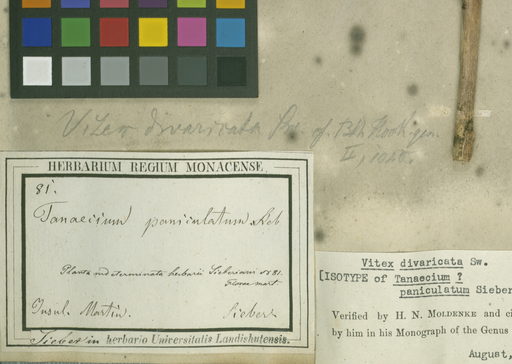 Vitex divaricata Sw. cf. Bth. Hook. gen.
II, 1040.
HERBARIUM REGIUM MONACENSE.
81.
Tanaecium paniculatum Sieb
Planta indeterminata herbarii Sieberiani No 81.
Insul. Martin. Sieber
Sieber in herbario Universitatis Landishutensis.
Vitex divaricata Sw.
[ISOTYPE of Tanaecium ?
paniculatum Sieber
Verified by H. N. MOLDENKE and ci
by him in his Monograph of the Genus
August,